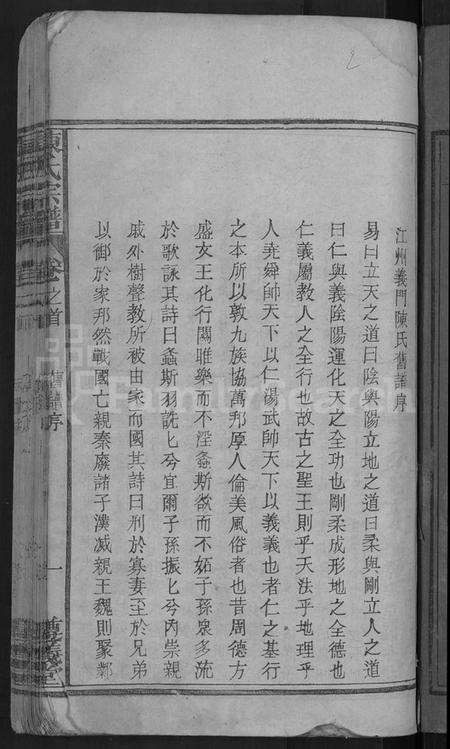 江州義門陳氏舊譜序
易曰立天之道曰陰與陽立地之道曰柔與剛立人之道
曰仁與義陰陽運化天之全功也剛柔成形地之全德也
仁義屬教人之全行也故古之聖王則乎天法乎地理乎
人堯舜帥天下以仁湯武帥天下以義義也者仁之基行
之本所以敦九族協萬邦厚人倫美風俗者也昔周德方
盛女王化行關雎樂而不淫螽斯欲而不妬子孫衆多流
於歌詠其詩曰螽斯羽詵匕兮宜爾子孫振匕兮內崇親
戚外樹聲教所被由家而國其詩曰刑於寡妻至於兄弟
以御於家邦然戰國亡親秦廢諸子漢减親王魏則聚鄴
陳氏宗譜
卷之首
舊譜序
一
義堂
FamilySearch